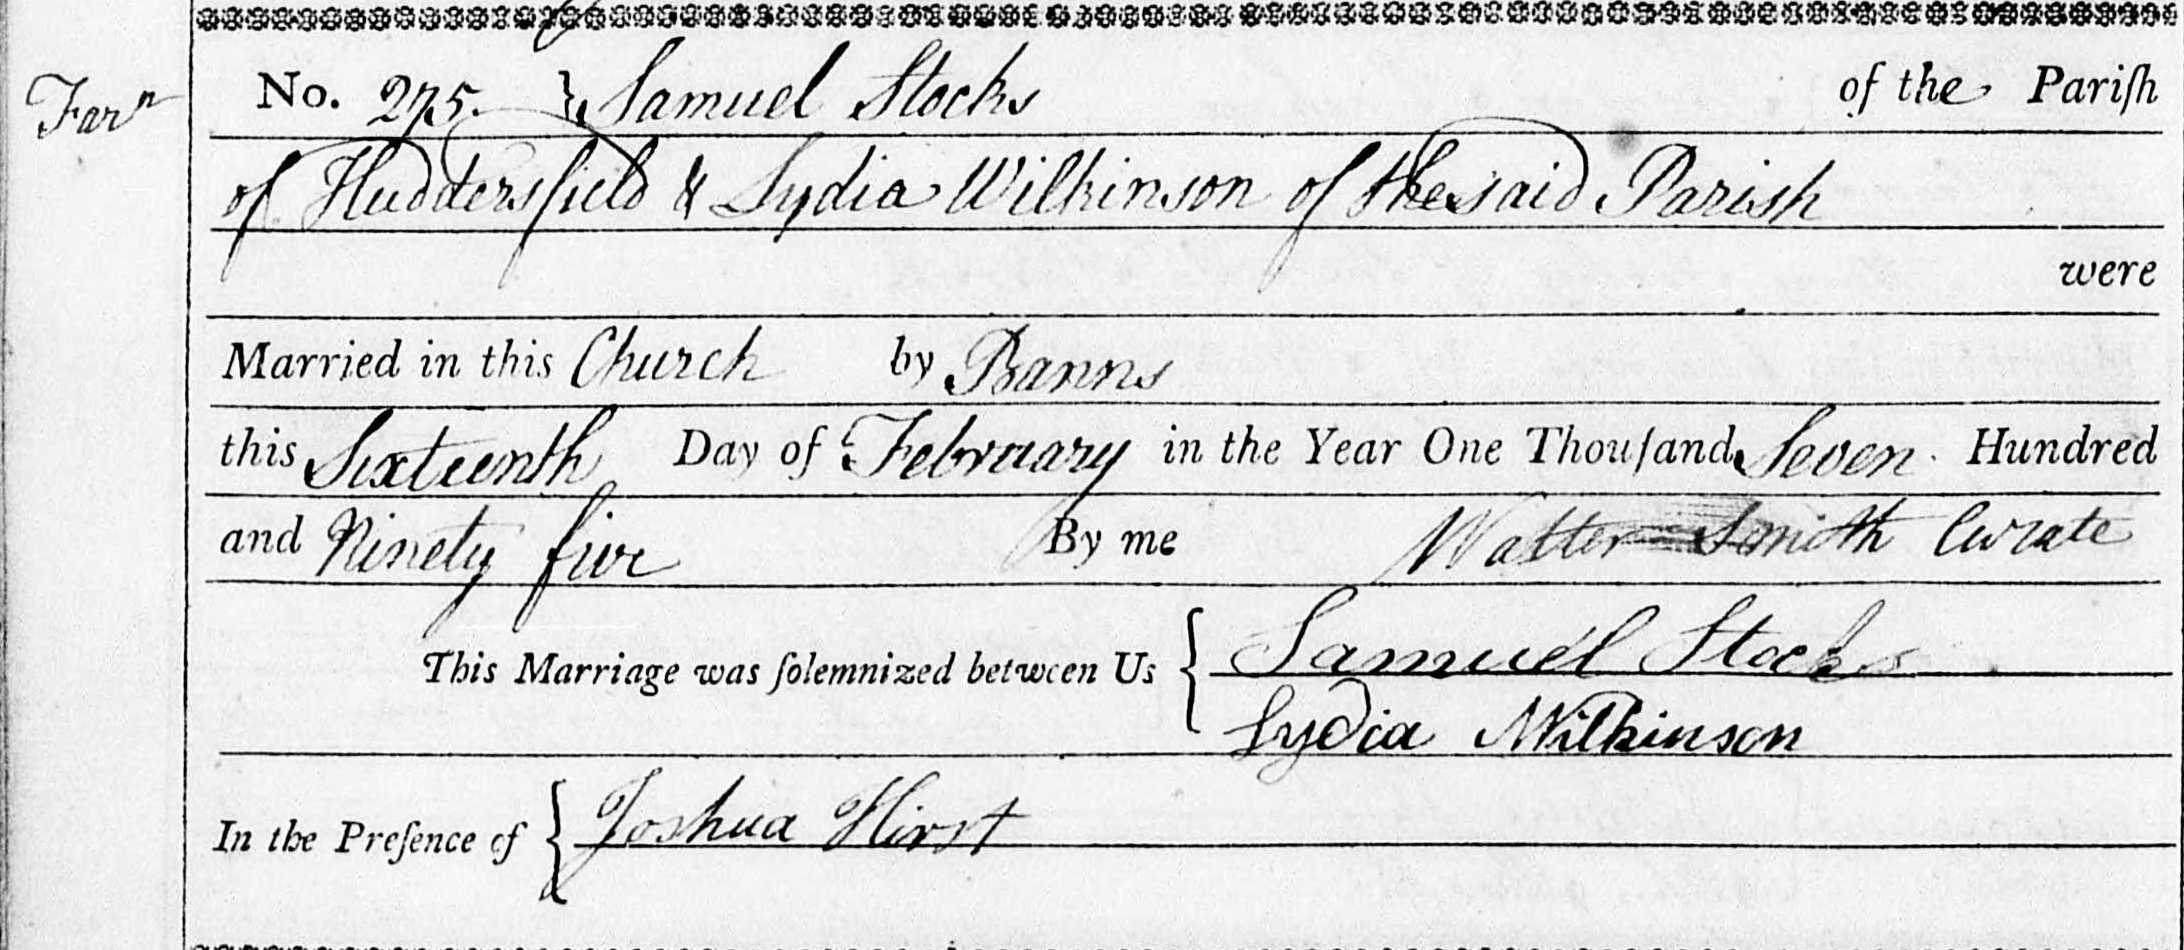 Farn
No. 275. } Samuel Stocks of the Pariſh
of Huddersfield & Lydia Wilkinson of the said Parish
were
Married in this Church by Banns
this Sixteenth Day of February in the Year One Thouſand Seven Hundred
and Ninety five By me Walter Smith Curate
This Marriage was ſolemnized between Us { Samuel Stocks
Lydia Wilkinson
In the Preſence of { Joshua Hirst